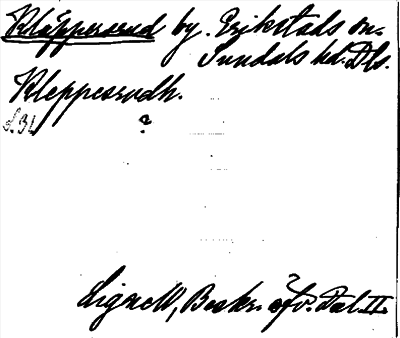 Kläppersrud by. Erikstads sn.
Sundals hd. Dls.
Kleppesrudh.
d. 31 ?
Lignell, Beskr. öfv. Dal. II.